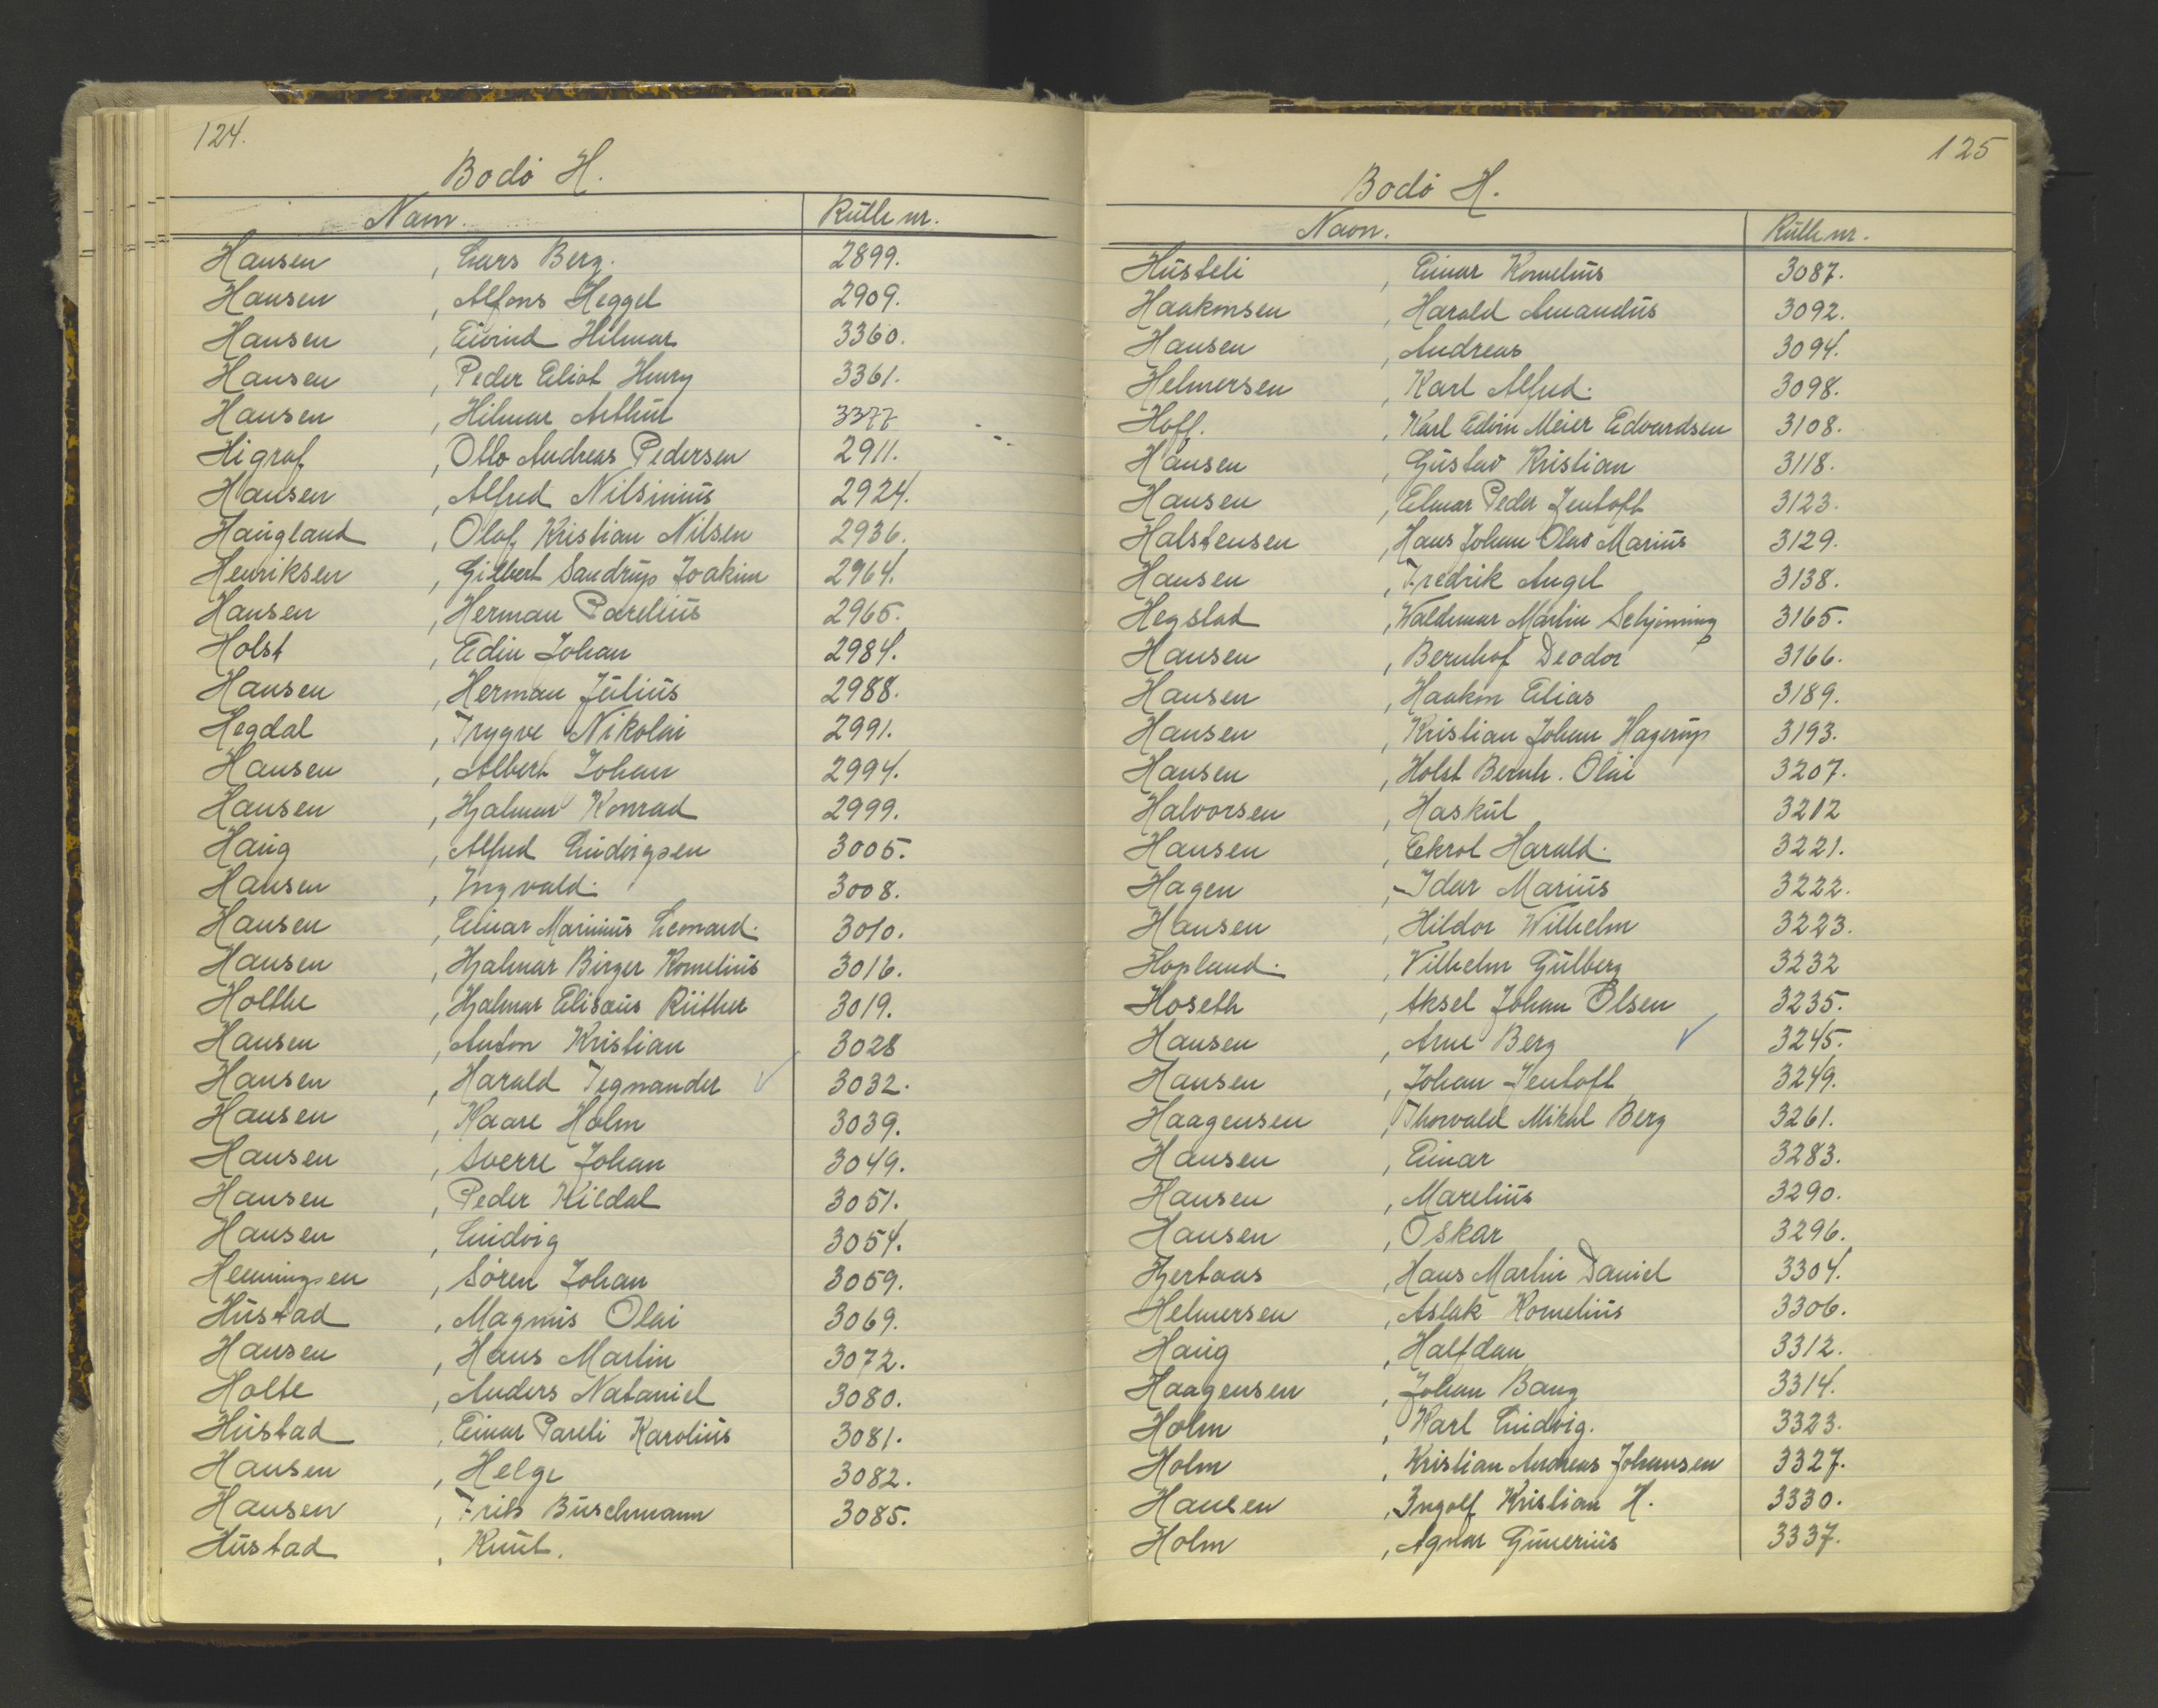 124.
Bodø H.
Navn. Rulle nr.
Hansen , Lars Berg. 2899.
Hansen , Alfons Heggel 2909.
Hansen , Eivind Hilmar 3360.
Hansen , Peder Eliot Henry 3361.
Hansen , Hilmar Arthur 3377
Higraf , Otto Andreas Pedersen 2911.
Hansen , Alfred Nilsinius 2924.
Haugland , Olaf Kristian Nilsen 2936.
Henriksen , Gilbert Sandrup Joakim 2964.
Hansen , Herman Parelius 2965.
Holst , Edin Johan 2984.
Hansen , Herman Julius 2988.
Hegdal , Trygve Nikolai 2991.
Hansen , Albert Johan 2994.
Hansen , Hjalmar Konrad 2999.
Haug , Alfred Ludvigsen 3005.
Hansen , Ingvald. 3008.
Hansen , Einar Marinius Leonard. 3010.
Hansen , Hjalmar Birger Kornelius 3016.
Holthe , Hjalmar Elisæus Rüther 3019.
Hansen , Anton Kristian 3028
Hansen , Harald Tegnander ✓ 3032.
Hansen , Kaare Holm 3039.
Hansen , Sverre Johan 3049.
Hansen , Peder Kildal 3051.
Hansen , Ludvig 3054.
Henningsen , Søren Johan 3059.
Hustad , Magnus Olai 3069.
Hansen , Hans Martin 3072.
Holte , Anders Nataniel 3080.
Hustad , Einar Pareli Karolius 3081.
Hansen , Helge 3082.
Hansen , Frits Buschmann 3085.
Hustad , Knut.
125
Bodø H.
Navn. Rulle nr.
Husteli , Einar Kornelius 3087.
Haakonsen , Harald Amandus 3092.
Hansen , Andreas 3094.
Helmersen , Karl Alfred. 3098.
Hoff. , Karl Edvin Meier Edvardsen 3108.
Hansen , Gustav Kristian 3118.
Hansen , Elmar Peder Jentoft 3123.
Halstensen , Hans Johan Olav Marius 3129.
Hansen , Fredrik Angel 3138.
Hegstad , Waldemar Martin Schjønning 3165.
Hansen , Bernhof Deodor 3166.
Hansen , Haakon Elias 3189.
Hansen , Kristian Johan Hagerup 3193.
Hansen , Holst Bernh. Olai 3207.
Halvorsen , Haskul 3212
Hansen , Ekrol Harald. 3221.
Hagen , Idar Marius 3222.
Hansen , Hildor Wilhelm 3223.
Hopland. , Vilhelm Gulberg 3232
Hoseth , Aksel Johan Olsen 3235.
Hansen , Arne Berg ✓ 3245.
Hansen , Johan Jentoft 3249.
Haagensen , Thorvald Mikal Berg 3261.
Hansen , Einar 3283.
Hansen , Marelius 3290.
Hansen , Oskar 3296.
Hjertaas , Hans Martin Daniel 3304.
Helmersen , Aslak Kornelius 3306.
Haug , Halfdan 3312.
Haagensen , Johan Bang 3314.
Holm , Karl Ludvig. 3323.
Holm , Kristian Andreas Johansen 3327.
Hansen , Ingolf Kristian H. 3330.
Holm , Agnar Gunerius 3337.